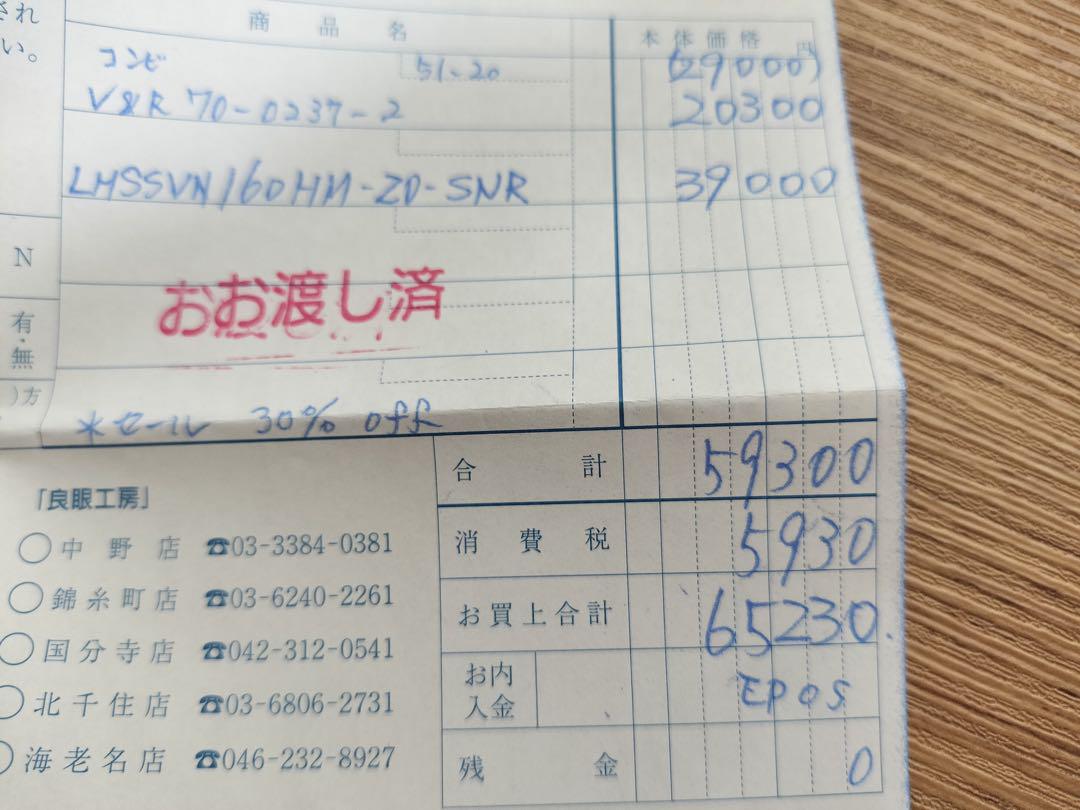 され
い。
商品名 本体価格 円
コンビ 51-20 (29000)
V&R 70-0237-2 20300
LHSSVN160HM-ZD-SNR 39000
N
お渡し済
有・無
)方
*セール 30% off
合計 59300
「良眼工房」
消費税 5930
中野店 ☎03-3384-0381
お買上合計 65230.
錦糸町店 ☎03-6240-2261
国分寺店 ☎042-312-0541
お内入金 EPOS
北千住店 ☎03-6806-2731
海老名店 ☎046-232-8927
残金 0